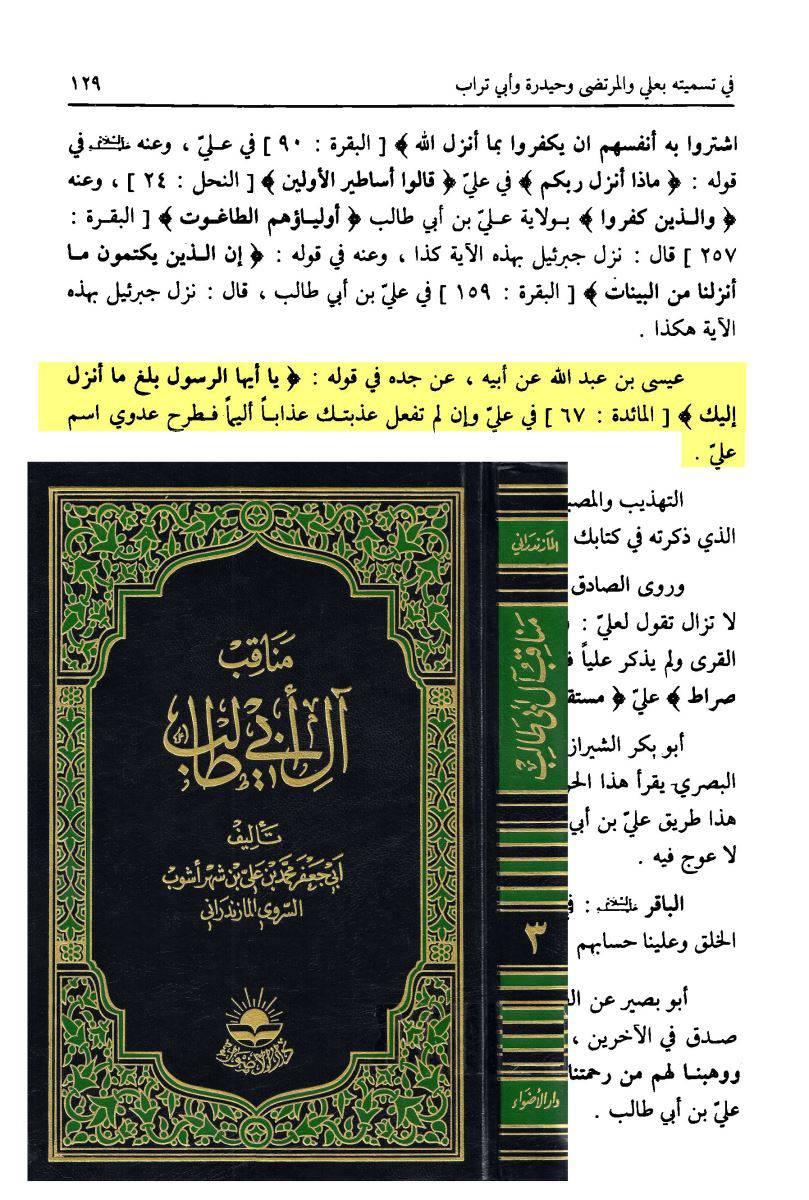 في تسميته بعلي والمرتضى وحيدرة وأبي تراب ١٢٩
اشتروا به أنفسهم ان يكفروا بما أنزل الله ﴾ [ البقرة : ٩٠ ] في عـليّ ، وعنه عليه السلام في
قوله : ﴿ ماذا أنزل ربكم ﴾ في عليّ ﴿ قالوا أساطير الأولين ﴾ [ النحل : ٢٤ ] ، وعنه
﴿ والـذين كفروا ﴾ بـولاية عـليّ بن أبي طالب ﴿ أوليـاؤهم الطاغـوت ﴾ [ البقـرة :
٢٥٧ ] قال : نزل جبرئيل بهذه الآية كذا ، وعنه في قوله : ﴿ إن الـذين يكتمون مـا
أنزلنا من البينات ﴾ [ البقرة : ١٥٩ ] في عليّ بن أبي طالب ، قال : نزل جبرئيل بهذه
الآية هكذا .
عيسى بن عبد الله عن أبيه ، عن جده في قوله : ﴿ يا أيها الرسول بلغ ما أنزل
إليك ﴾ [ المائدة : ٦٧ ] في عليّ وإن لم تفعل عذبتـك عذابـاً أليماً فـطرح عدوي اسم
عليّ .
التهذيب والمصبـ
الذي ذكرته في كتابك
وروى الصادق
لا تزال تقول لعليّ :
القرى ولم يذكر علياً
صراط ﴾ عليّ ﴿ مستقـ
أبو بكر الشيراز
البصري يقرأ هذا الحر
هذا طريق عليّ بن أبي
لا عوج فيه .
الباقر عليه السلام :
الخلق وعلينا حسابهم
أبو بصير عن
صدق في الآخرين ،
ووهبنـا لهم من رحمتنا
عليّ بن أبي طالب .
مَنَاقِب
آل أبي طالب
تأليف
أبي جعفر محمد بن علي بن شهر آشوب
السروي المازندراني
دار الأضواء
المازندراني
مناقب آل أبي طالب
٣
دار الأضواء